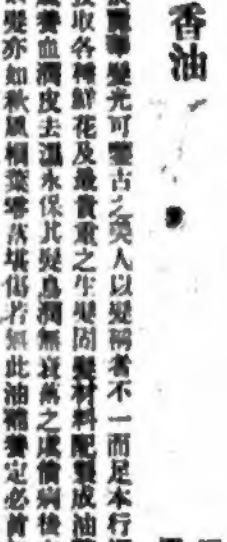 香油
髮光可鑒古之美人以髮稱者不一而足本行
取各種鮮花及最貴重之生髮固髮材料配製成油
養血潤皮去濕永保其髮烏潤無衰落之虞倘病後
髮亦如秋風桐葉零落堪傷若無此油補養定必首